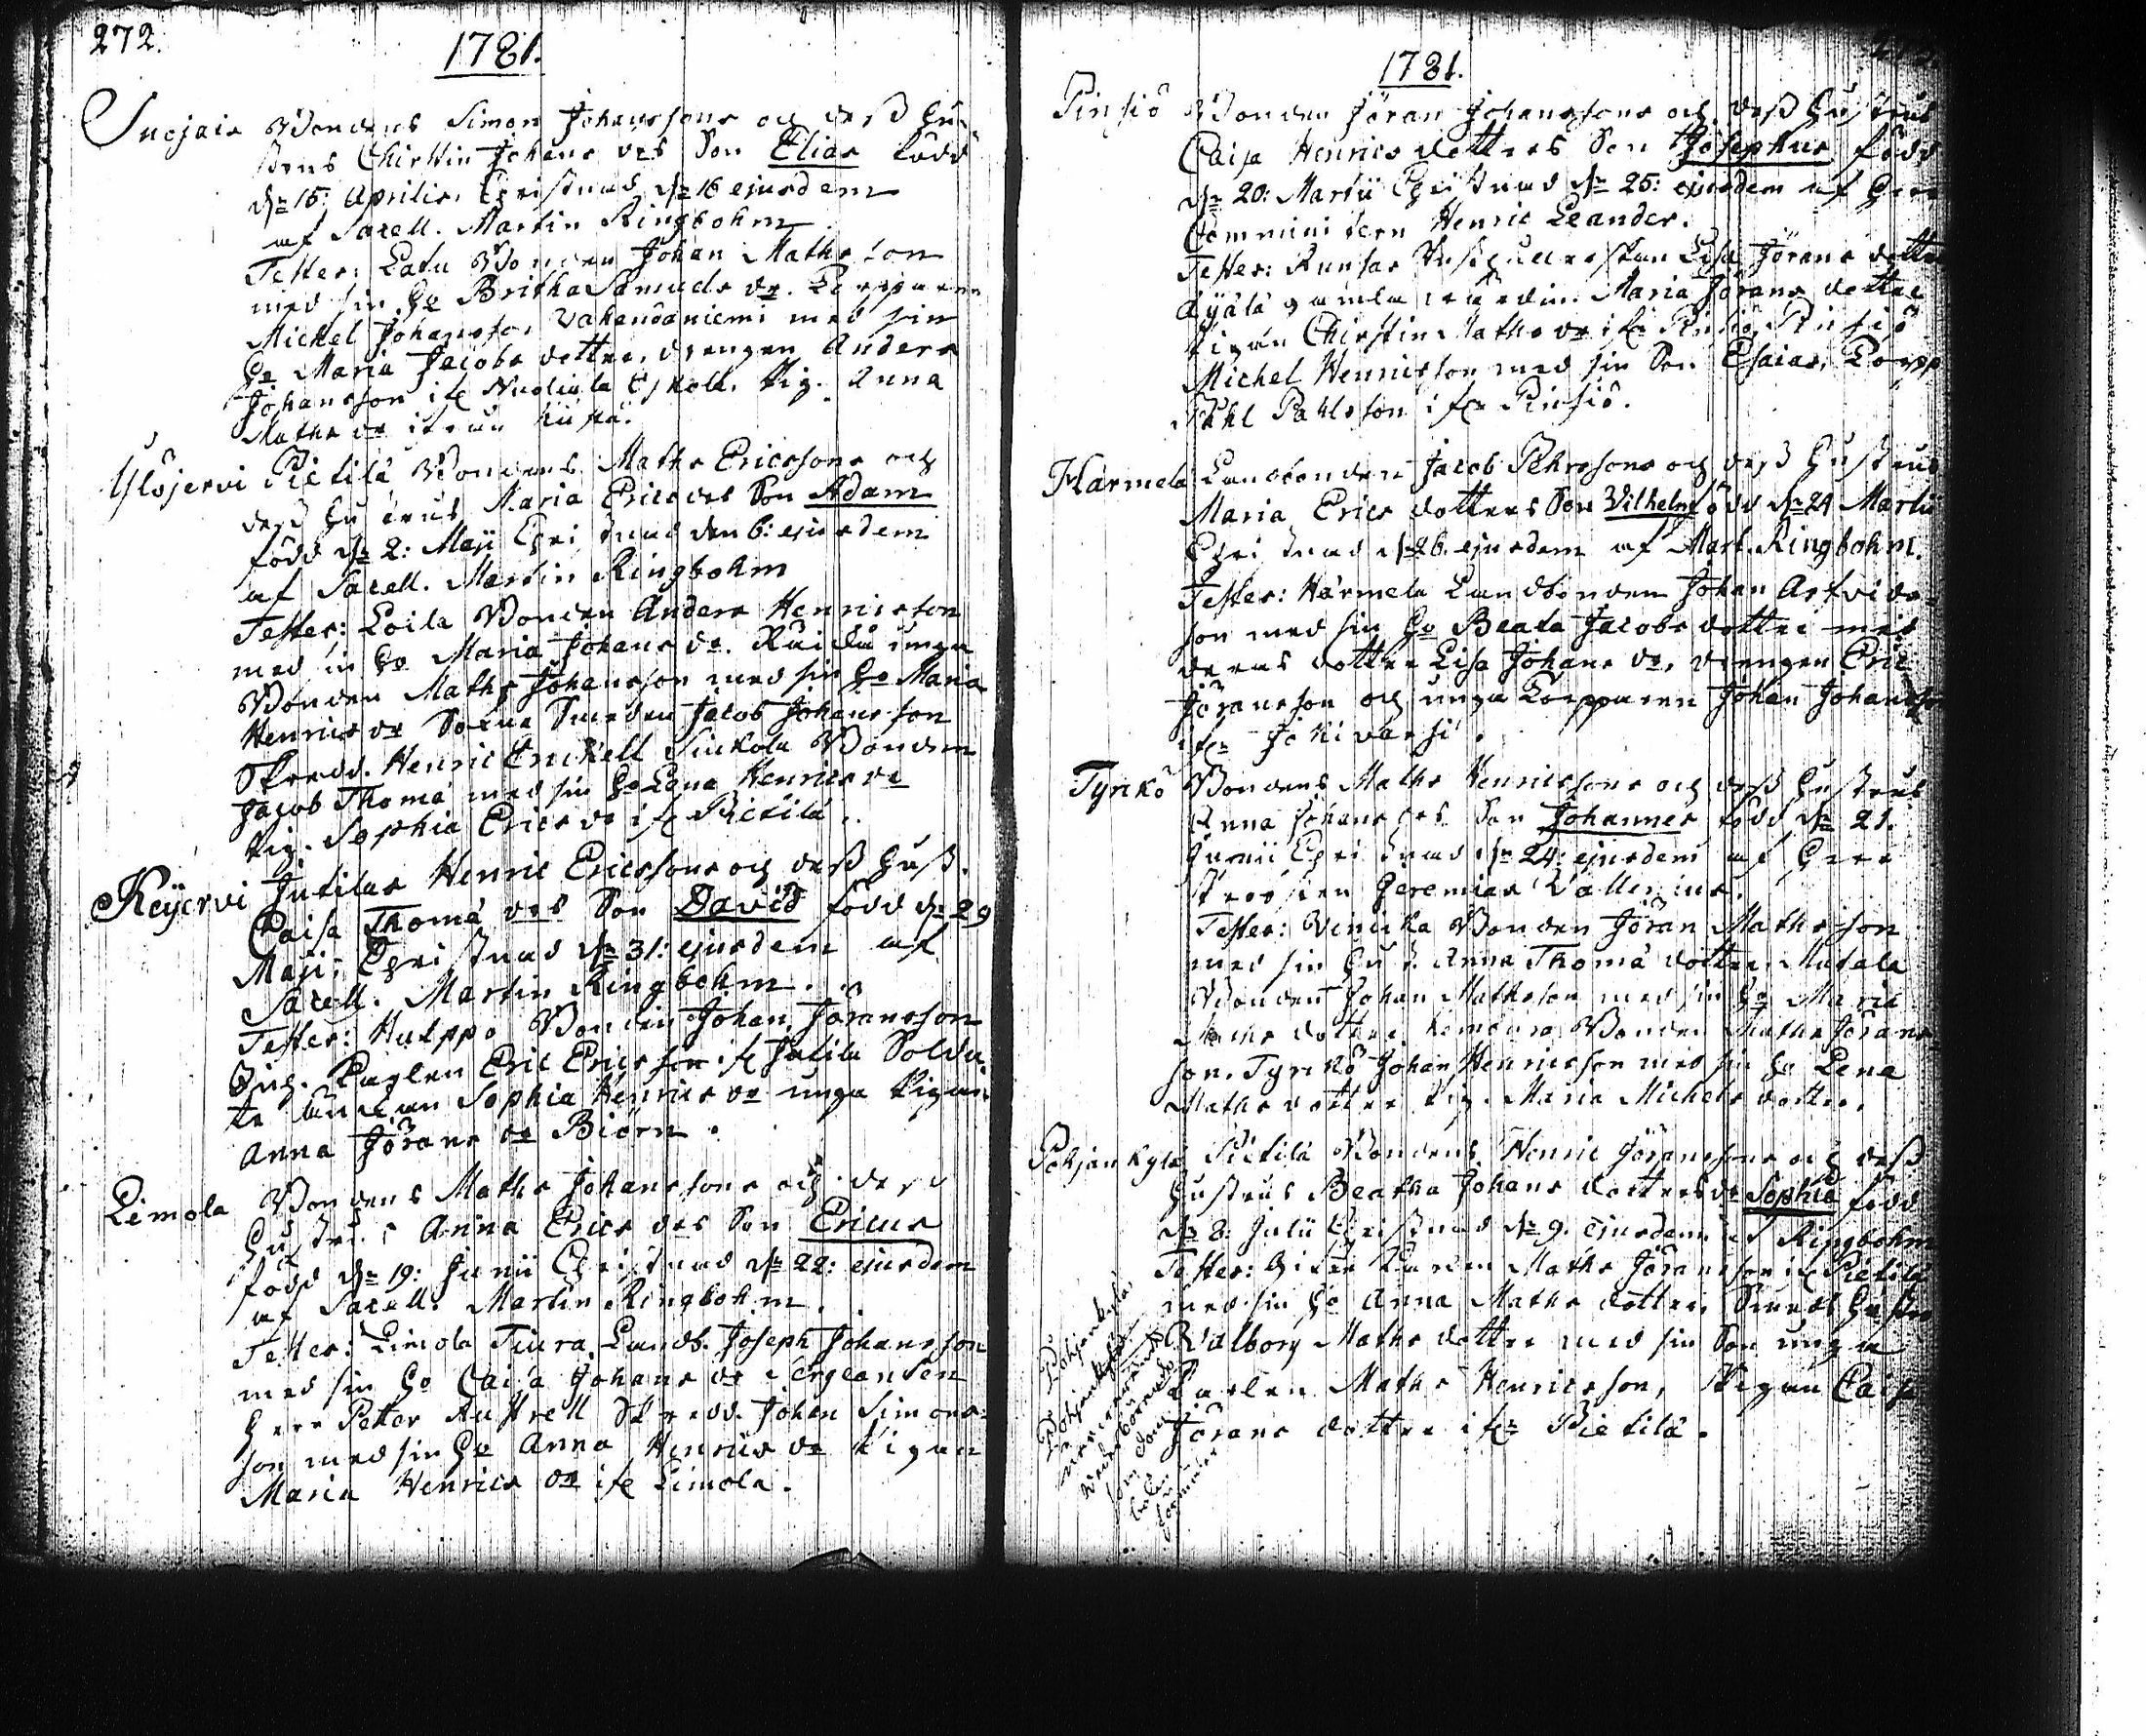 272.
1781.
Sucjais Bondens Simon Johanssons och dess Hu-
strus Chirstin Johans drs Son Elias född
dn 15: Aprilis, Christnad dn 16 ejusdem
af Sacell. Martin Ringbohm
Testes: Latu Bonden Johan Mathsson
med sin Ho Britha Samuels dr. Torparen
Michel Johansson Vahendaniemi med sin
Ho Maria Jacobs dotter, drengen Anders
Johansson ifr Nuoliala Eskola. Pig. Anna
Maths dr
Ylöjervi Pietilä Bondens Maths Ericssons och
dess Hustrus Maria Erics drs Son Adam
född dn 2: Maji Christnad den 6: ejusdem
af Sacell. Martin Ringbohm
Testes: Loila Bonden Anders Henricsson
med sin Ho Maria Johans dr. unga
Bonden Maths Johansson med sin Ho Maria
Henrics dr Smeden Jacob Johansson
Skredd. Henric Enckell Siukola Bonden
Jacob Thomæ med sin Ho Lena Henrics dr
Pig. Sophia Erics dr ifr Pietilä.
Keijervi Jutilas Henric Ericssons och dess Hust.
Caisa Thomæ drs Son David född dn 29
Maji, Christnad dn 31: ejusdem af
Sacell. Martin Ringbohm.
Testes: Hulppo Bonden Johan Göransson
Karlen Eric Ericsson ifr Jutila Solda-
te Sophia Henrics dr unga Pigan
Anna Görans dr Biörn.
Limola Bondens Maths Johanssons och dess
Hustrus Anna Erics drs Son Ericus
född dn 19: Junii Christnad dn 22: ejusdem
af Sacell. Martin Ringbohm.
Testes: Limola Tiura Landb. Joseph Johansson
med sin Ho Caisa Johans dr Sergeanten
Herr Petter Austrell Skredd. Johan Simons-
son med sin Ho Anna Henrics dr Pigan
Maria Henrics dr ifr Limola.
1781.
Pinsiö Bonden Jöran Johanssons och dess Hustrus
Caisa Henrics dotters Son Josephus född
dn 20: Martii Christnad dn 25: ejusdem af Herr
Comministern Henric Leander.
Testes: Lisa Jörans dotter
gamla Maria Jörans dotter
Pigan Chirstin Maths dr ifr Pinsiö, Pinsiö
Michel Henricsson med sin Son Esaias, Torpp
Påhl Påhlsson ifrn Pinsiö.
Härmelä Landbonden Jacob Pehrssons och dess Hustrus
Maria Erics dotters Son Vilhelm född dn 24 Martii
Christnad dn 26. ejusdem af Mart. Ringbohm.
Testes: Härmelä Landbonden Johan Arfvids-
son med sin Ho Beata Jacobs dotter med
deras dotter Lisa Johans dr, drengen Eric
Jöransson och unga Torpparen Johan Johansson
ifrn Jokivarsi.
Tyrckö Bondens Maths Henricssons och dess Hustrus
Anna Johans drs Son Johannes född dn 21.
Junii Christnad dn 24: ejusdem af Herr
Jeremias Vallenius.
Testes: Vinicka Bonden Jöran Mathsson
med sin Hust. Anna Thomæ dotter, Mutala
Bonden Johan Mathsson med sin Ho Maria
dotter, Bonden Maths Jörans-
son. Tyrckö Johan Henricsson med sin Ho Lena
Maths dotter Pig. Maria Michels dotter.
Pohjankylä Pietilä Bondens Henric Jöranssons och dess
Hustrus Beatha Johans dotters dr Sophia född
dn 8: Julii Christnad dn 9. ejusdem af Ringbohm
Testes: Maths Jöransson ifr Pietilä
med sin Ho Anna Maths dotter, Smeds Hustru
Valborg Maths dotter med sin Son unga
Karlen Maths Henricsson, Pigan Caisa
Jörans dotter ifrn Pietilä.
Pohjankylä
Pohjankylä